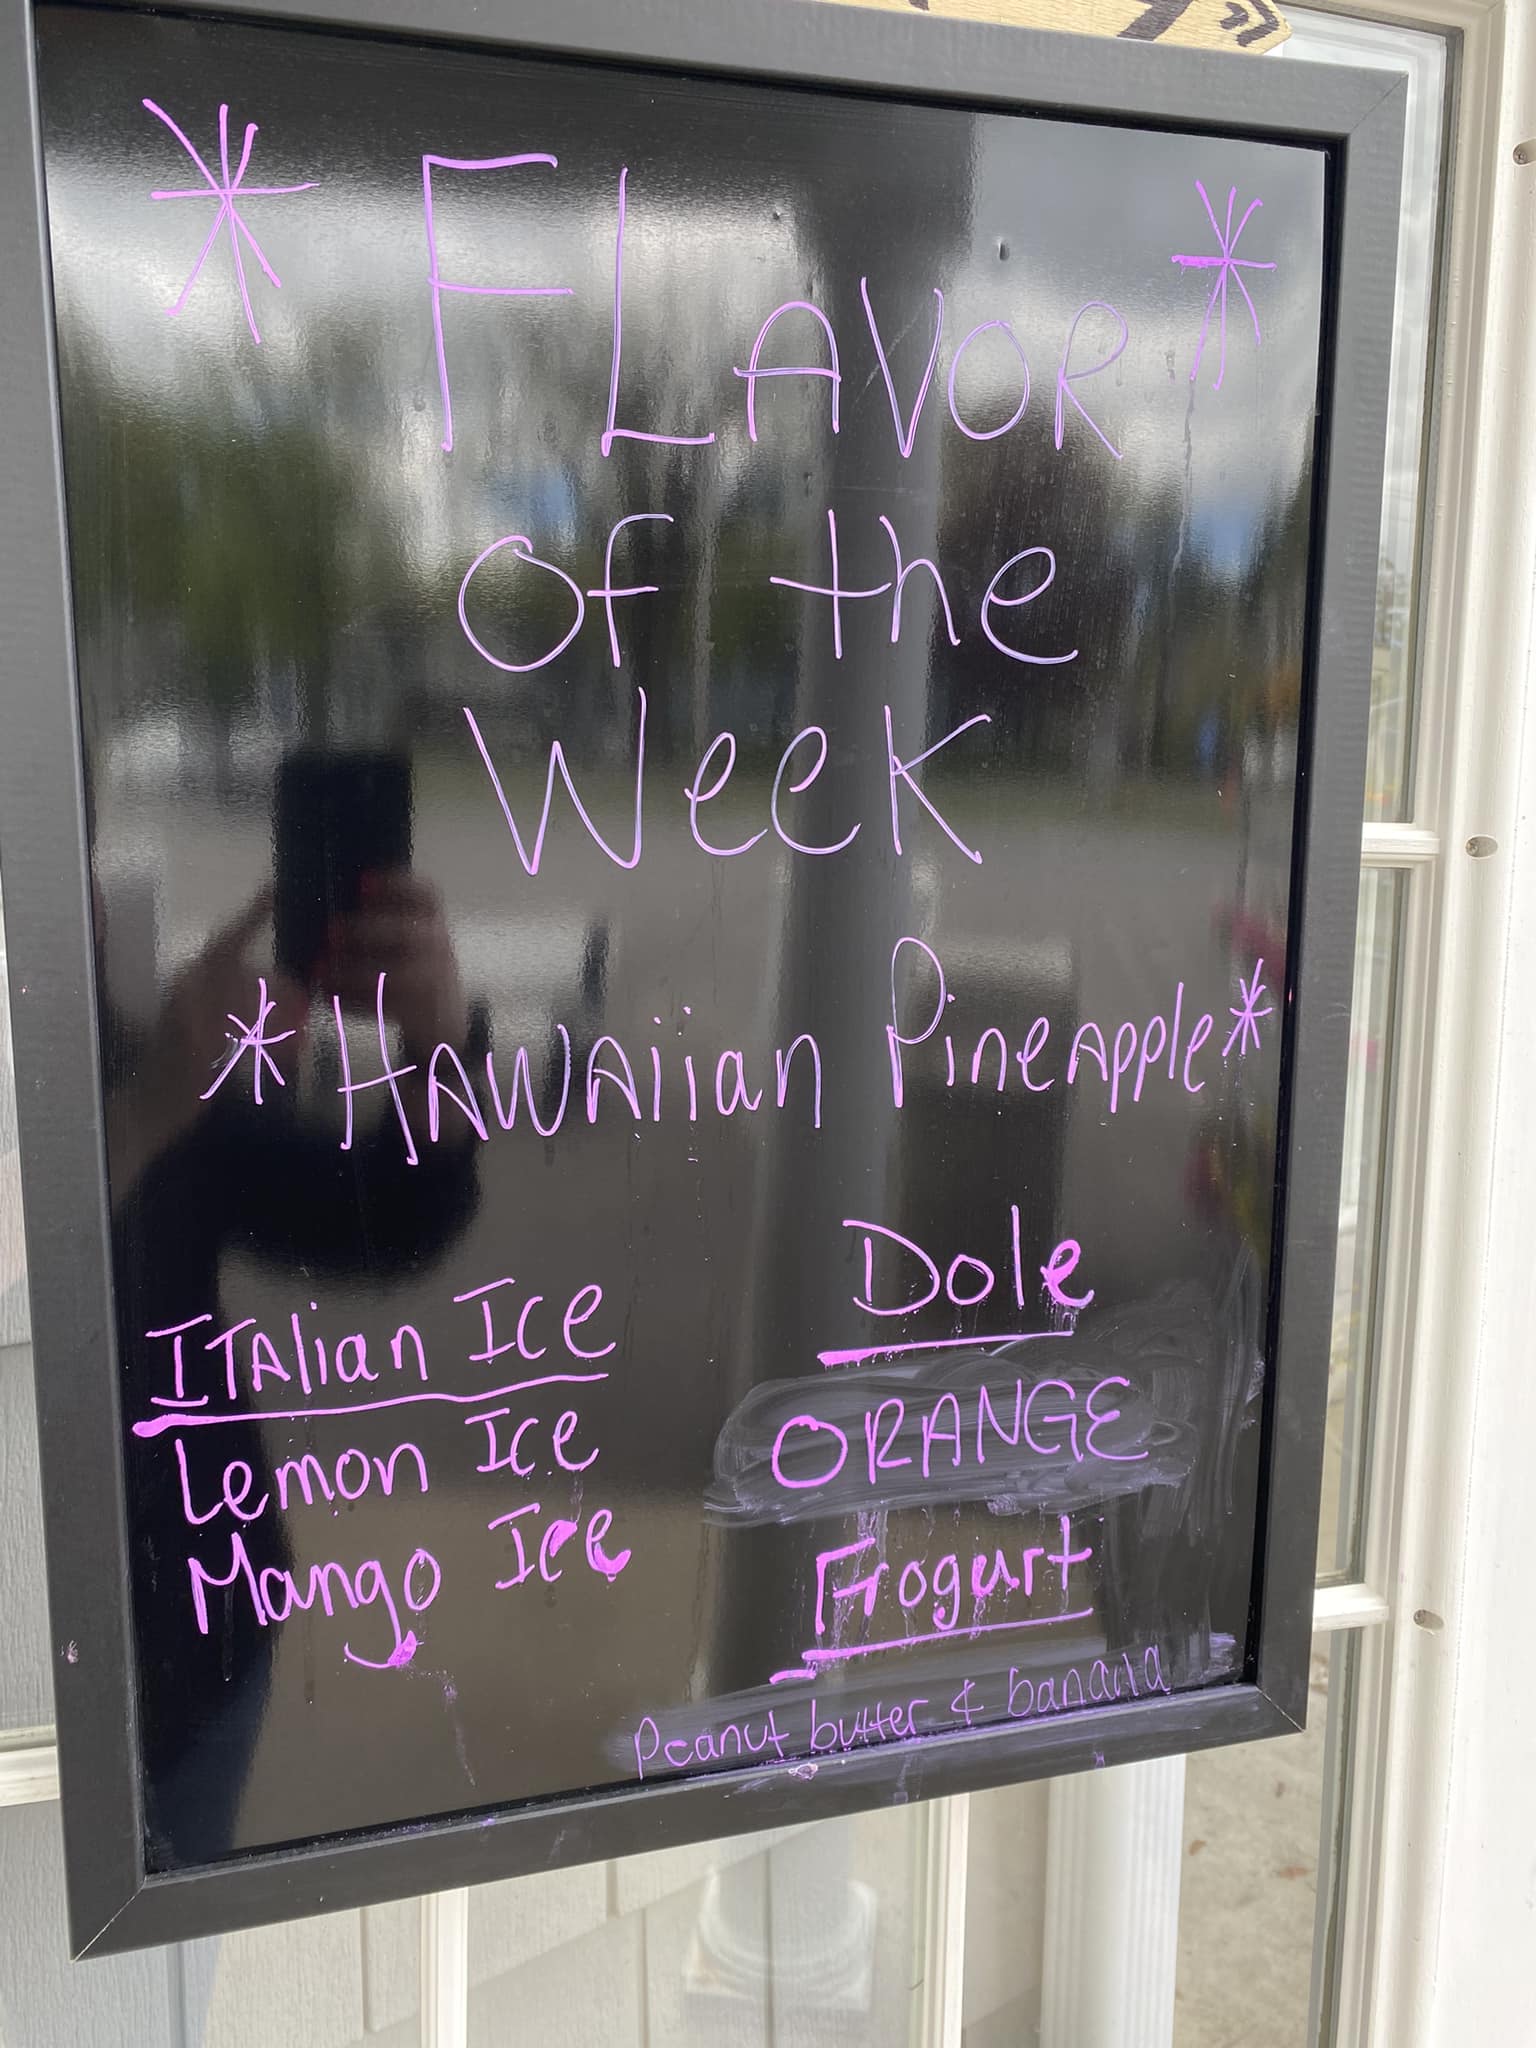 * FLAVOR *
of the
Week
* HAWAiian PineApple *
ITAlian Ice
Lemon Ice
Mango Ice
Dole
ORANGE
Frogurt
Peanut butter & banana